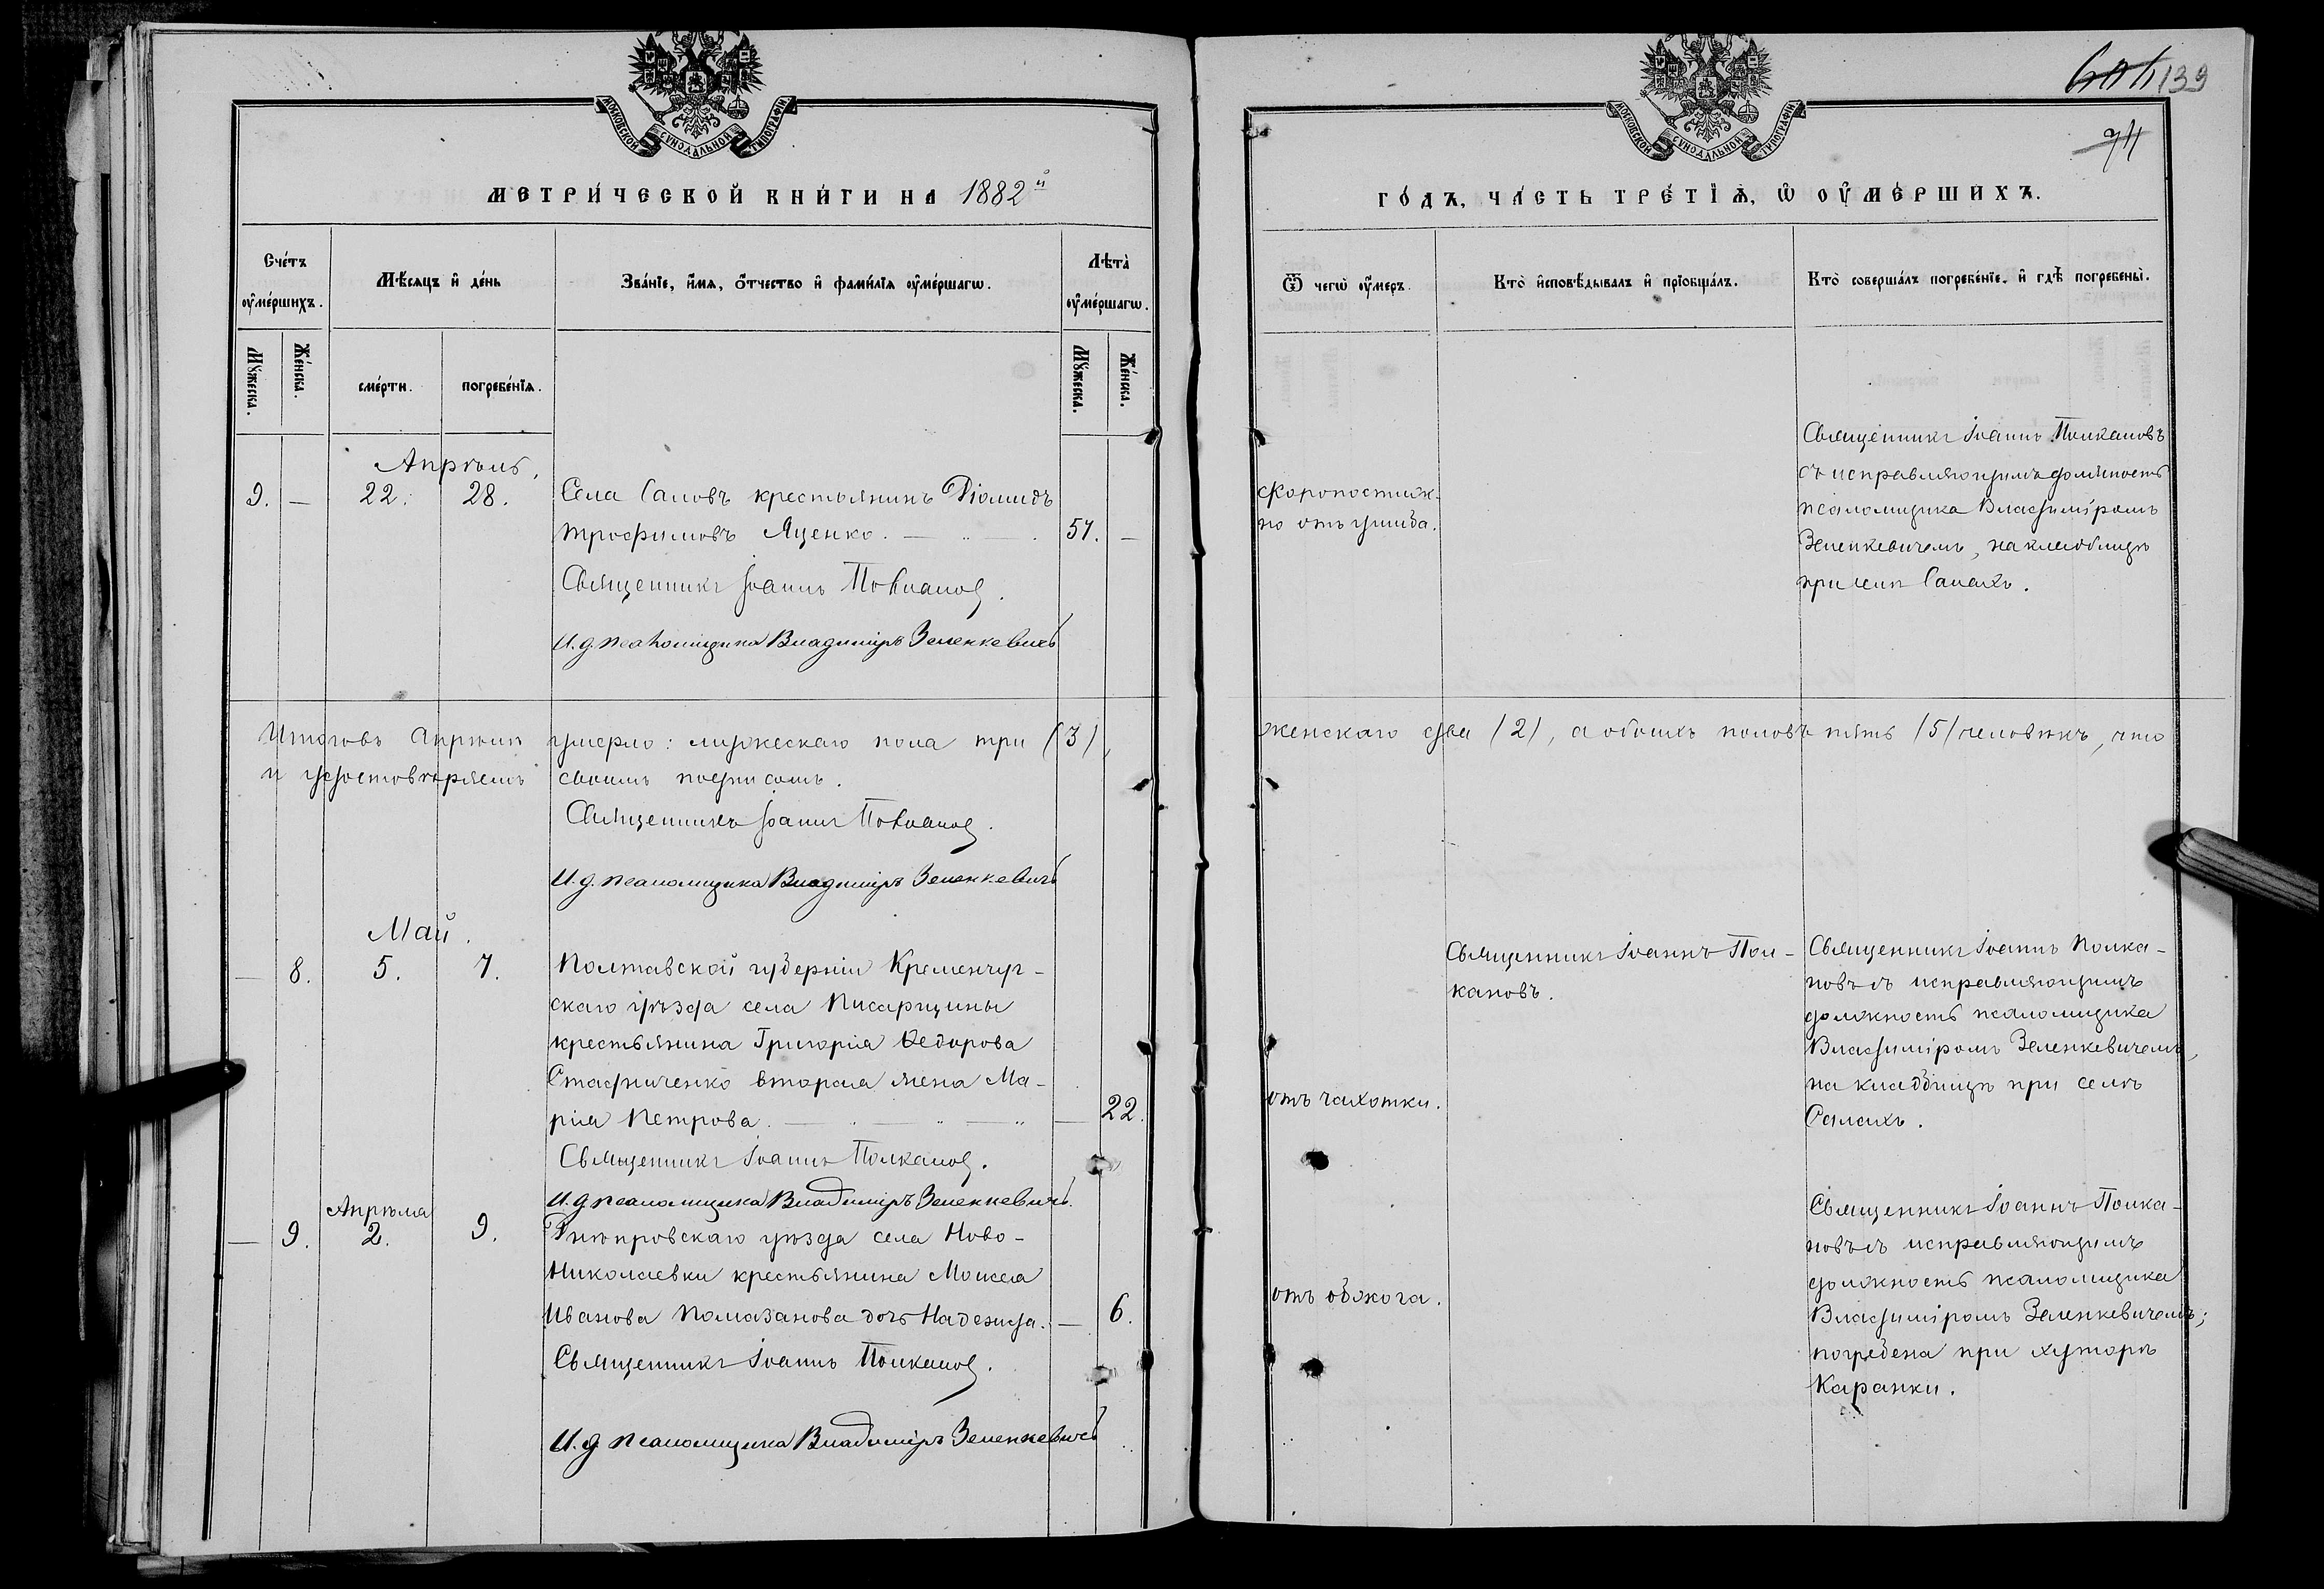 МОСКОВСКОЙ СѴНОДАЛЬНОЙ ТИПОГРАФІИ
МЕТРИ́ЧЕСКОЙ КНИ́ГИ НА 1882й
Сче́тъ ᲂу҆ме́ршихъ.
Мѣ́сѧцъ и҆ де́нь
Зва́нїе, и҆́мѧ, ѻ҆́тчество и҆ фами́лїѧ ᲂу҆ме́ршагѡ.
Лѣта̀ ᲂу҆ме́ршагѡ.
Мꙋ́жеска.
Же́нска.
сме́рти.
погребе́нїѧ.
Мꙋ́жеска.
Же́нска.
Апрѣль.
9. — 22. 28. Села Саловъ крестьянинъ Діомидъ
Трофимовъ Яценко. — 57. —
Священникъ Іоаннъ Полкановъ.
И.д. псаломщика Владиміръ Зеленкевичъ
Итоговъ Апрѣлѣ умерло: мужескаго пола три (3),
и удостовѣряемъ своимъ подписомъ.
Священникъ Іоаннъ Полкановъ.
И.д. псаломщика Владиміръ Зеленкевичъ
Май.
— 8. 5. 7. Полтавской губерніи Кременчуг-
скаго уѣзда села Писарщины
крестьянина Григорія Ѳедорова
Стадниченко вторая жена Ма-
рія Петрова. — 22.
Священникъ Іоаннъ Полкановъ.
И.д. псаломщика Владиміръ Зеленкевичъ.
Апрѣля
— 9. 2. 9. Днѣпровскаго уѣзда села Ново-
Николаевки крестьянина Моисея
Иванова Помазанова дочь Надежда. — 6.
Священникъ Іоаннъ Полкановъ.
И.д. псаломщика Владиміръ Зеленкевичъ
139
74
МОСКОВСКОЙ СѴНОДАЛЬНОЙ ТИПОГРАФІИ
ГО́ДЪ, ЧА́СТЬ ТРЕ́ТЇѦ, Ѡ҆ ОУ҆МЕ́РШИХЪ.
Ѿ чегѡ̀ ᲂу҆́меръ.
Кто̀ и҆сповѣ́дывалъ и҆ прїѡбща́лъ.
Кто̀ соверша́лъ погребе́нїе, и҆ гдѣ̀ погребены̀.
скоропостиж-
но отъ ушиба.
Священникъ Іоаннъ Полкановъ
съ исправляющимъ должность
псаломщика Владиміромъ
Зеленкевичемъ, на кладбищѣ
при селѣ Салахъ.
женскаго два (2), а обоихъ половъ пять (5) человѣкъ, что
Священникъ Іоаннъ Пол-
кановъ.
отъ чахотки.
Священникъ Іоаннъ Полка-
новъ съ исправляющимъ
должность псаломщика
Владиміромъ Зеленкевичемъ,
на кладбищѣ при селѣ
Салахъ.
отъ обжога.
Священникъ Іоаннъ Полка-
новъ съ исправляющимъ
должность псаломщика
Владиміромъ Зеленкевичемъ;
погребена при хуторѣ
Каранки.